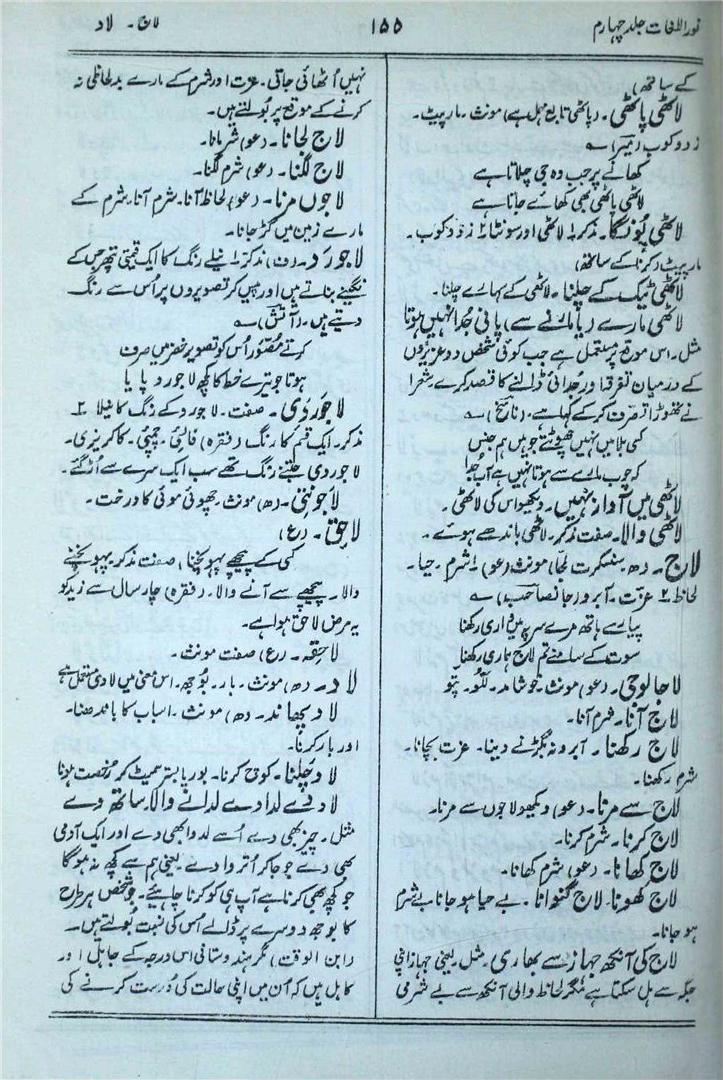 نور اللغات جلد چہارم
۱۵۵
لاج ۔ لاد
کے ساتھ)
لاٹھی پاٹھی ۔ (پاٹھی تابع مہمل ہے) مونث ۔ مارپیٹ ۔
زد و کوب (میر) ؎
کھانے پر جب وہ جی چلاتا ہے
لاٹھی پاٹھی بھی کھائے جاتا ہے
لاٹھی پونگا ۔ مذکر ۱ لاٹھی اور سونٹا ۲ زد و کوب ۔
مارپیٹ (کرنا کے ساتھ)
لاٹھی ٹیک کے چلنا ۔ لاٹھی کے سہارے چلنا ۔
لاٹھی مارے (یا مارنے سے) پانی جُدا نہیں ہوتا
مثل ۔ اس موقع پر مستعمل ہے جب کوئی شخص دو عزیزوں
کے درمیان تفرقہ اور جُدائی ڈالنے کا قصد کرے شعرا
نے تھوڑا تصرف کرکے کہا ہے ۔ (ناسخ) ؎
کسی بلا میں نہیں چھوٹتے جو ہیں ہم جنس
کہ چوب مارے سے ہوتا نہیں ہے آب جدا
لاٹھی میں آواز نہیں ۔ دیکھو اس کی لاٹھی ۔
لاٹھی والا ۔ صفت مذکر ۔ لاٹھی باندھے ہوئے ۔
لاج ۔ (ھ ۔ سنسکرت لجا) مونث (عو) ۱ شرم ۔ حیا ۔
لحاظ ۲ عزت ۔ آبرو (جانصاحب) ؎
پیارے ہاتھ مرے سر پہ ہزاری رکھنا
سوت کے سامنے تم لاج ہماری رکھنا
لاجالوجی ۔ (عو) مونث خوشامد ۔ لگو ۔ پتو
لاج آنا ۔ شرم آنا ۔
لاج رکھنا ۔ آبرو نہ بگڑنے دینا ۔ عزت بچانا ۔
شرم رکھنا ۔
لاج سے مرنا ۔ (عو) دیکھو لاجوں سے مرنا ۔
لاج کرنا ۔ شرم کرنا ۔
لاج کھانا ۔ (عو) شرم کھانا ۔
لاج کھونا لاج گنوانا ۔ بے حیا ہو جانا ۔ بے شرم
ہو جانا ۔
لاج کی آنکھ جہاز سے بھاری ۔ مثل ۔ یعنی جہاز اپنی
جگہ سے ہل سکتا ہے مگر لحاظ والی آنکھ سے بے شرمی
نہیں اُٹھائی جاتی ۔ عزت اور شرم کے مارے بد لحاظی نہ
کرنے کے موقع پر بولتے ہیں ۔
لاج لجانا ۔ (عو) شرمانا ۔
لاج لگنا ۔ (عو) شرم لگنا ۔
لاجوں مرنا ۔ (عو) لحاظ آنا ۔ شرم آنا ۔ شرم کے
مارے زمین میں گڑ جانا ۔
لاجورد ۔ (ف) مذکر ۱ نیلے رنگ کا ایک قیمتی پتھر جس کے
نگینے بناتے ہیں اور پیس کر تصویروں پر اُس سے رنگ
دیتے ہیں ۔ (آتش) ؎
کرتے مصور اُس کو تصویر خضر میں صرف
ہوتا جو تیرے خط کا کچھ لاجورد پایا
لاجوردی ۔ صفت ۔ لاجورد کے رنگ کا نیلا ۲
مذکر ۔ ایک قسم کا رنگ (فقرہ) فالسئی ۔ چمپئی ۔ کاکریزی ۔
لاجوردی جتنے رنگ تھے سب ایک سرے سے اُڑ گئے ۔
لاجونتی ۔ (ھ) مونث ۔ چھوئی موئی کا درخت ۔
لاحق ۔ (ع)
کسی کے پیچھے پہونچنا) صفت مذکر ۔ پہونچنے
والا ۔ پیچھے سے آنے والا ۔ (فقرہ) چار سال سے زید کو
یہ مرض لاحق ہوا ہے ۔
لاحقہ ۔ (ع) صفت مونث ۔
لاد ۔ (ھ) مونث ۔ بار ۔ بوجھ ۔ اس معنی میں لادی مستعمل ہے
لاد پھاند ۔ (ھ) مونث ۔ اسباب کا باندھنا ۔
اور بار کرنا ۔
لاد چلنا ۔ کوچ کرنا ۔ بوریا بستر سمیٹ کر رخصت ہونا
لاد دے لدا دے لدانے والا ساتھ دے
مثل ۔ چیز بھی دے اُسے لدوا بھی دے اور ایک آدمی
بھی دے جو جا کر اُتروا دے ۔ یعنی ہم سے کچھ نہ ہوگا
جو کچھ بھی کرنا ہے آپ ہی کو کرنا چاہئے ۔ جو شخص ہر طرح
کا بوجھ دوسرے پر ڈالے اُس کی نسبت بولتے ہیں ۔
(ابن الوقت) مگر ہندوستانی اس درجہ کے جاہل اور
کاہل ہیں کہ اُن میں اپنی حالت کی درست کرنے کی